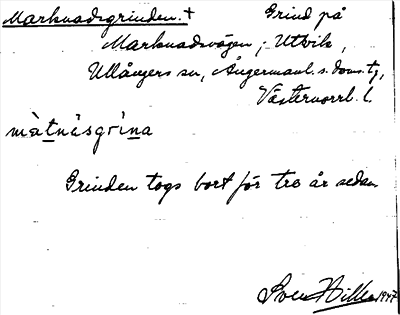 Marknadsgrinden. + Grind på
Marknadsvägen, Utvik,
Ullångers sn, Ångermanl. s. doms. tj,
Västernorrl. l.
màtnàsgrìna
Grinden togs bort för tre år sedan
Sven Hillen 1947